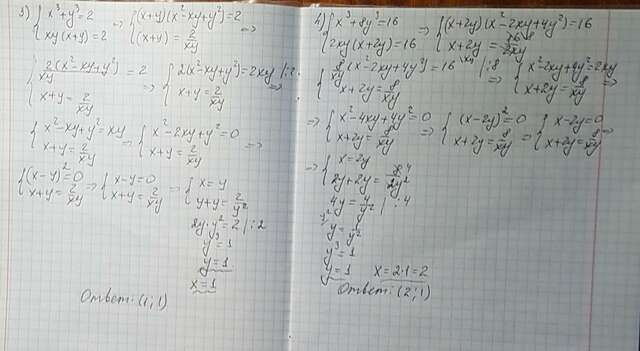 3) { x³+y³=2 ⇒ { (x+y)(x²-xy+y²)=2 ⇒
{ xy(x+y)=2 { (x+y)=2/xy
{ 2(x²-xy+y²)/xy = 2 ⇒ { 2(x²-xy+y²)=2xy |:2 ⇒
{ x+y=2/xy { x+y=2/xy
{ x²-xy+y²=xy ⇒ { x²-2xy+y²=0 ⇒
{ x+y=2/xy { x+y=2/xy
{ (x-y)²=0 ⇒ { x-y=0 ⇒ { x=y
{ x+y=2/xy { x+y=2/xy { y+y=2/y²
2y·y²=2 |:2
y³=1
y=1
x=1
Ответ: (1;1)
4) { x³+8y³=16 ⇒ { (x+2y)(x²-2xy+4y²)=16
{ 2xy(x+2y)=16 { x+2y=16 8/2xy
{ 8/xy(x²-2xy+4y²)=16 |·xy |:8 ⇒ { x²-2xy+4y²=2xy ⇒
{ x+2y=8/xy { x+2y=8/xy
⇒ { x²-4xy+4y²=0 ⇒ { (x-2y)²=0 ⇒ { x-2y=0 ⇒
{ x+2y=8/xy { x+2y=8/xy { x+2y=8/xy
⇒ { x=2y
{ 2y+2y=8 4/2y²
4y=4/y² |:4
y·y²
y³=1
y=1 x=2·1=2
Ответ: (2;1)